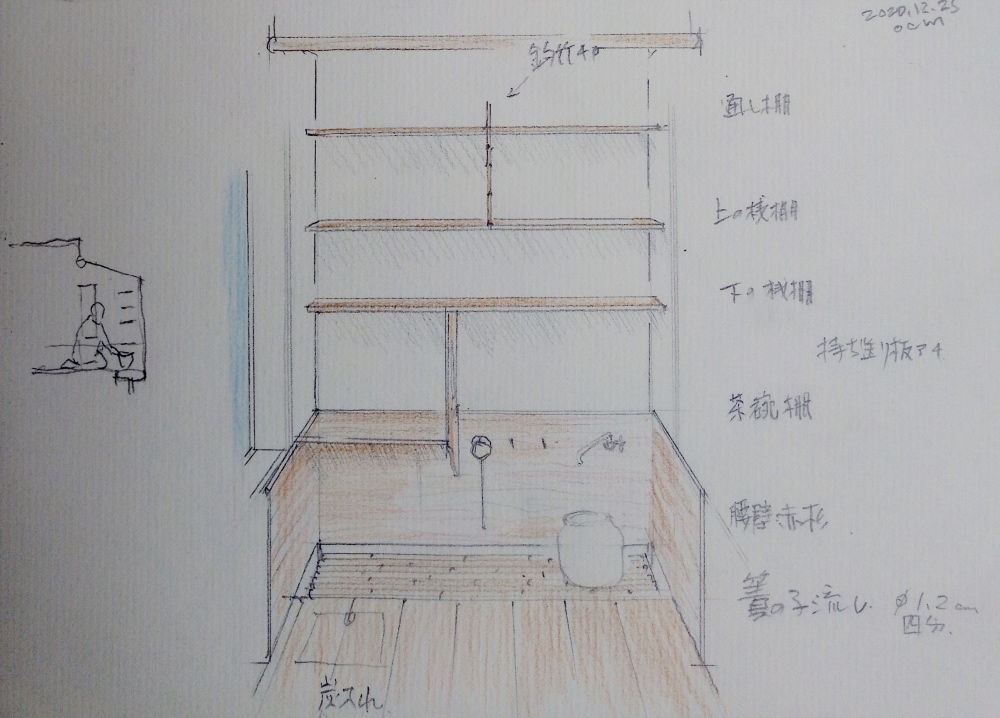 2020.12.25
ocm
通し棚
上の桟棚
下の桟棚
持ち送り板アキ
茶碗棚
腰壁:赤杉
簀の子流し. φ1.2cm
四分.
炭入れ